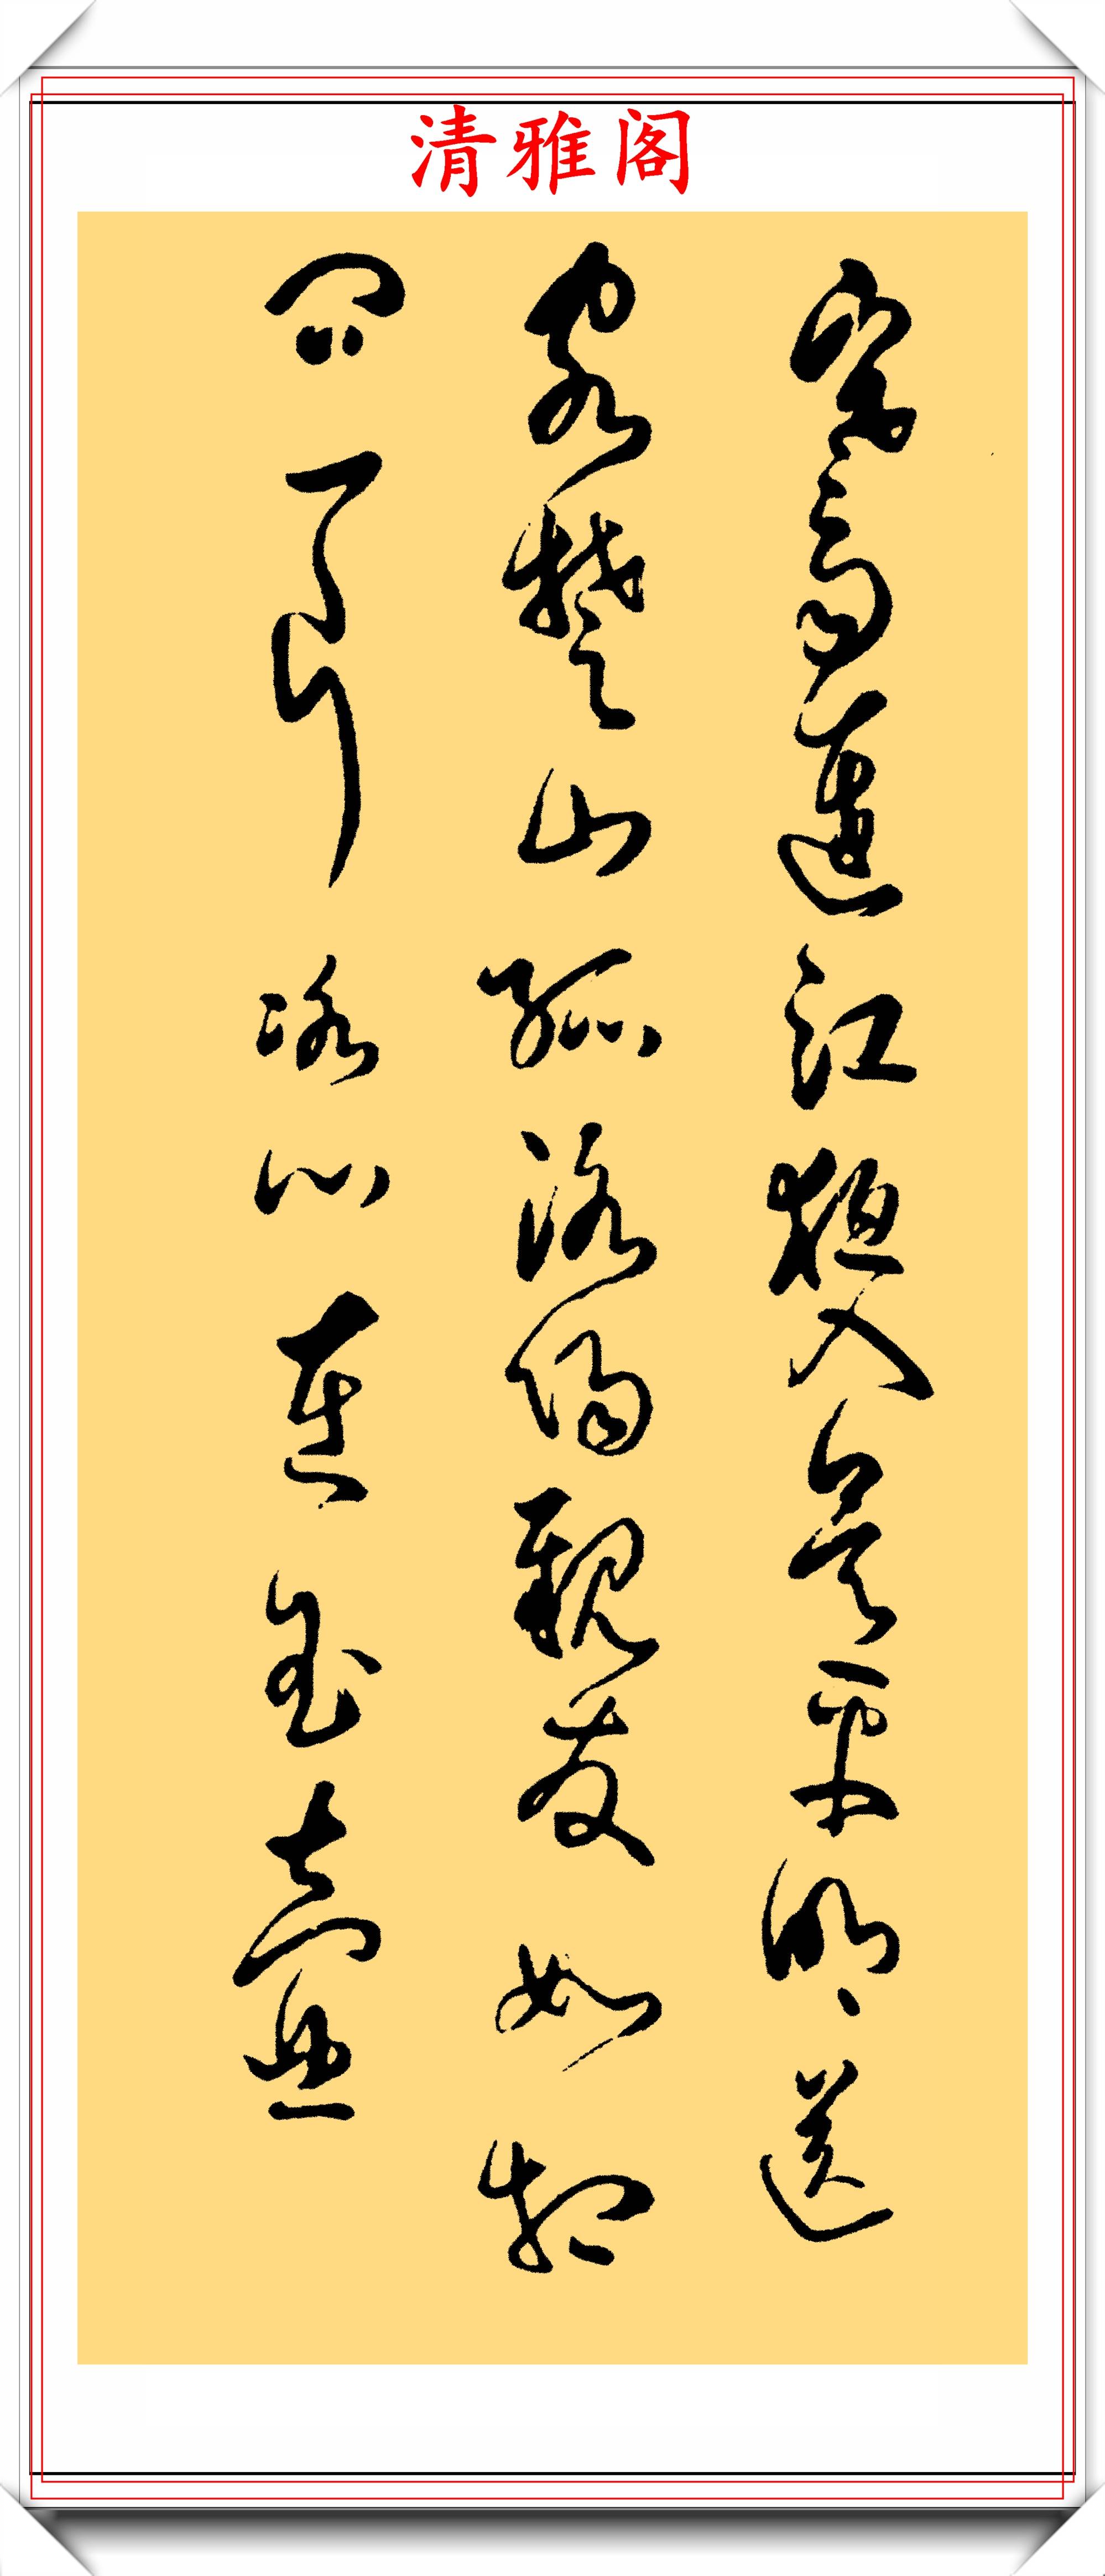 清雅阁
寒雨連江夜入吳平明送
客楚山孤洛陽親友如相
問一片冰心在玉壺